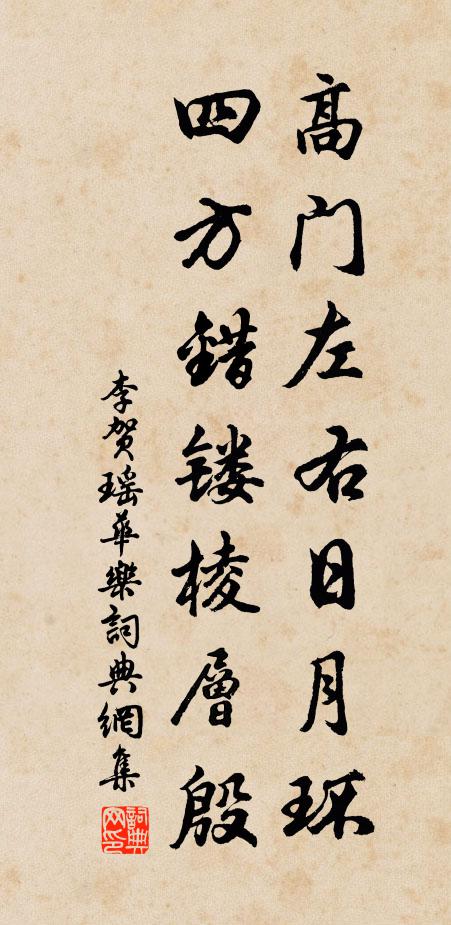 高门左右日月环
四方错镂棱層殷
李贺瑶華樂詞典網集
詞典网印